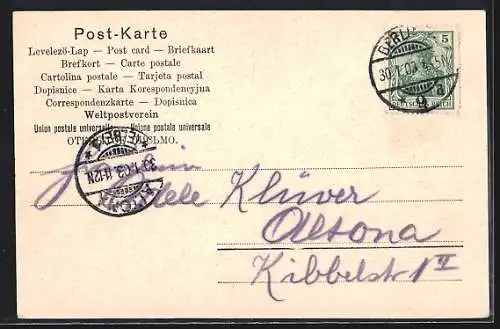 Post-Karte
Levelező-Lap — Post card — Briefkaart
Brefkort — Carte postale
Cartolina postale — Tarjeta postal
Dopisnice — Karta Korespondencyjna
Correspondenzkarte — Dopisnica
Weltpostverein
Union postale universelle — Unione postale universale
ОТКРЫТОЕ ПИСЬМО.
5
30.1.03
9 a
DEUTSCHES REICH
30.1.03 11-12N
Klüver
Altona
Kibbelstr 1 II